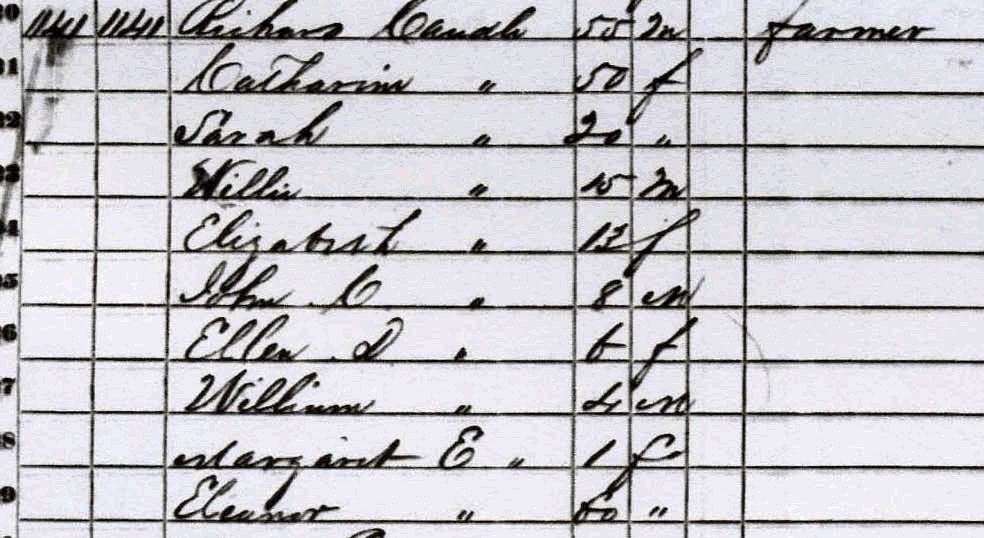 1141 1141 Richard Caudle 55 m farmer
Catharine " 50 f
Sarah " 20 "
Willis " 15 m
Elizabeth " 13 f
John C " 8 m
Ellen D " 6 f
William " 4 m
Margaret E " 1 f
Eleanor " 60 "